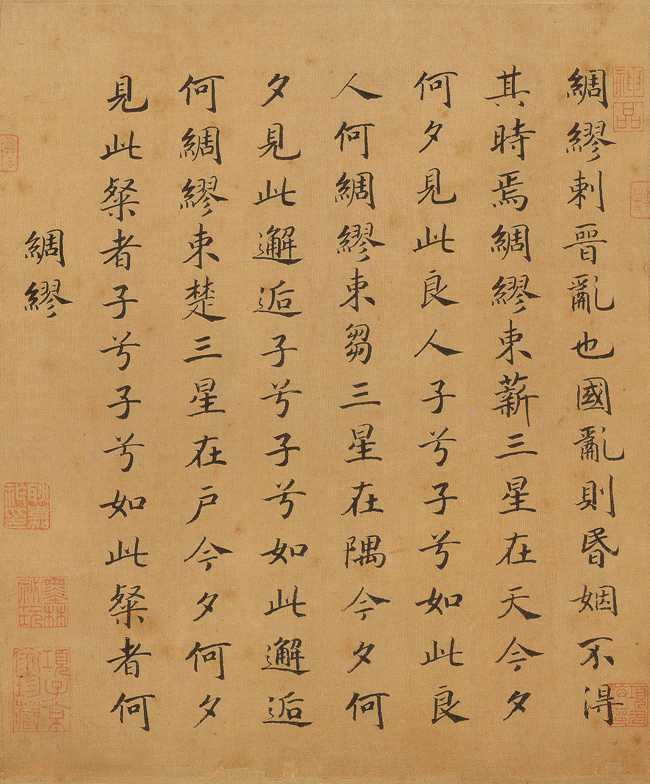 綢繆刺晉亂也國亂則昬姻不淂
其時焉綢繆束薪三星在天今夕
何夕見此良人子兮子兮如此良
人何綢繆束芻三星在隅今夕何
夕見此邂逅子兮子兮如此邂逅
何綢繆束楚三星在戶今夕何夕
見此粲者子兮子兮如此粲者何
綢繆
神品